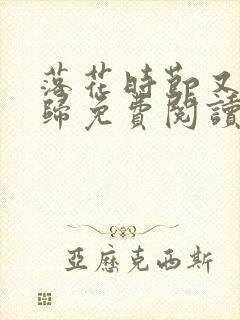 落花時節又
歸免費閱讀
亞歷克西斯